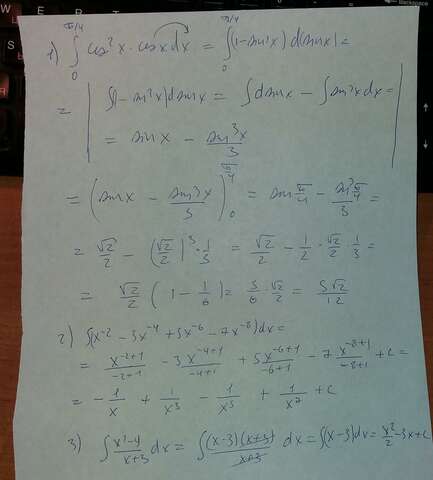 1) ∫₀^{π/4} cos²x · cos x dx = ∫₀^{π/4} (1 - sin²x) d(sin x) =
= | ∫(1 - sin²x) d sin x = ∫ d sin x - ∫ sin²x dx =
= sin x - sin³x/3 |
= (sin x - sin³x/3)₀^{π/4} = sin π/4 - sin³ π/4 / 3 =
= √2/2 - (√2/2)³ · 1/3 = √2/2 - 1/2 · √2/2 · 1/3 =
= √2/2 (1 - 1/6) = 5/6 · √2/2 = 5√2/12
2) ∫(x⁻² - 3x⁻⁴ + 5x⁻⁶ - 7x⁻⁸) dx =
= x^{-2+1}/(-2+1) - 3 x^{-4+1}/(-4+1) + 5 x^{-6+1}/(-6+1) - 7 x^{-8+1}/(-8+1) + c =
= - 1/x + 1/x³ - 1/x⁵ + 1/x⁷ + c
3) ∫ (x² - 9)/(x+3) dx = ∫ (x-3)(x+3)/(x+3) dx = ∫(x-3) dx = x²/2 - 3x + c